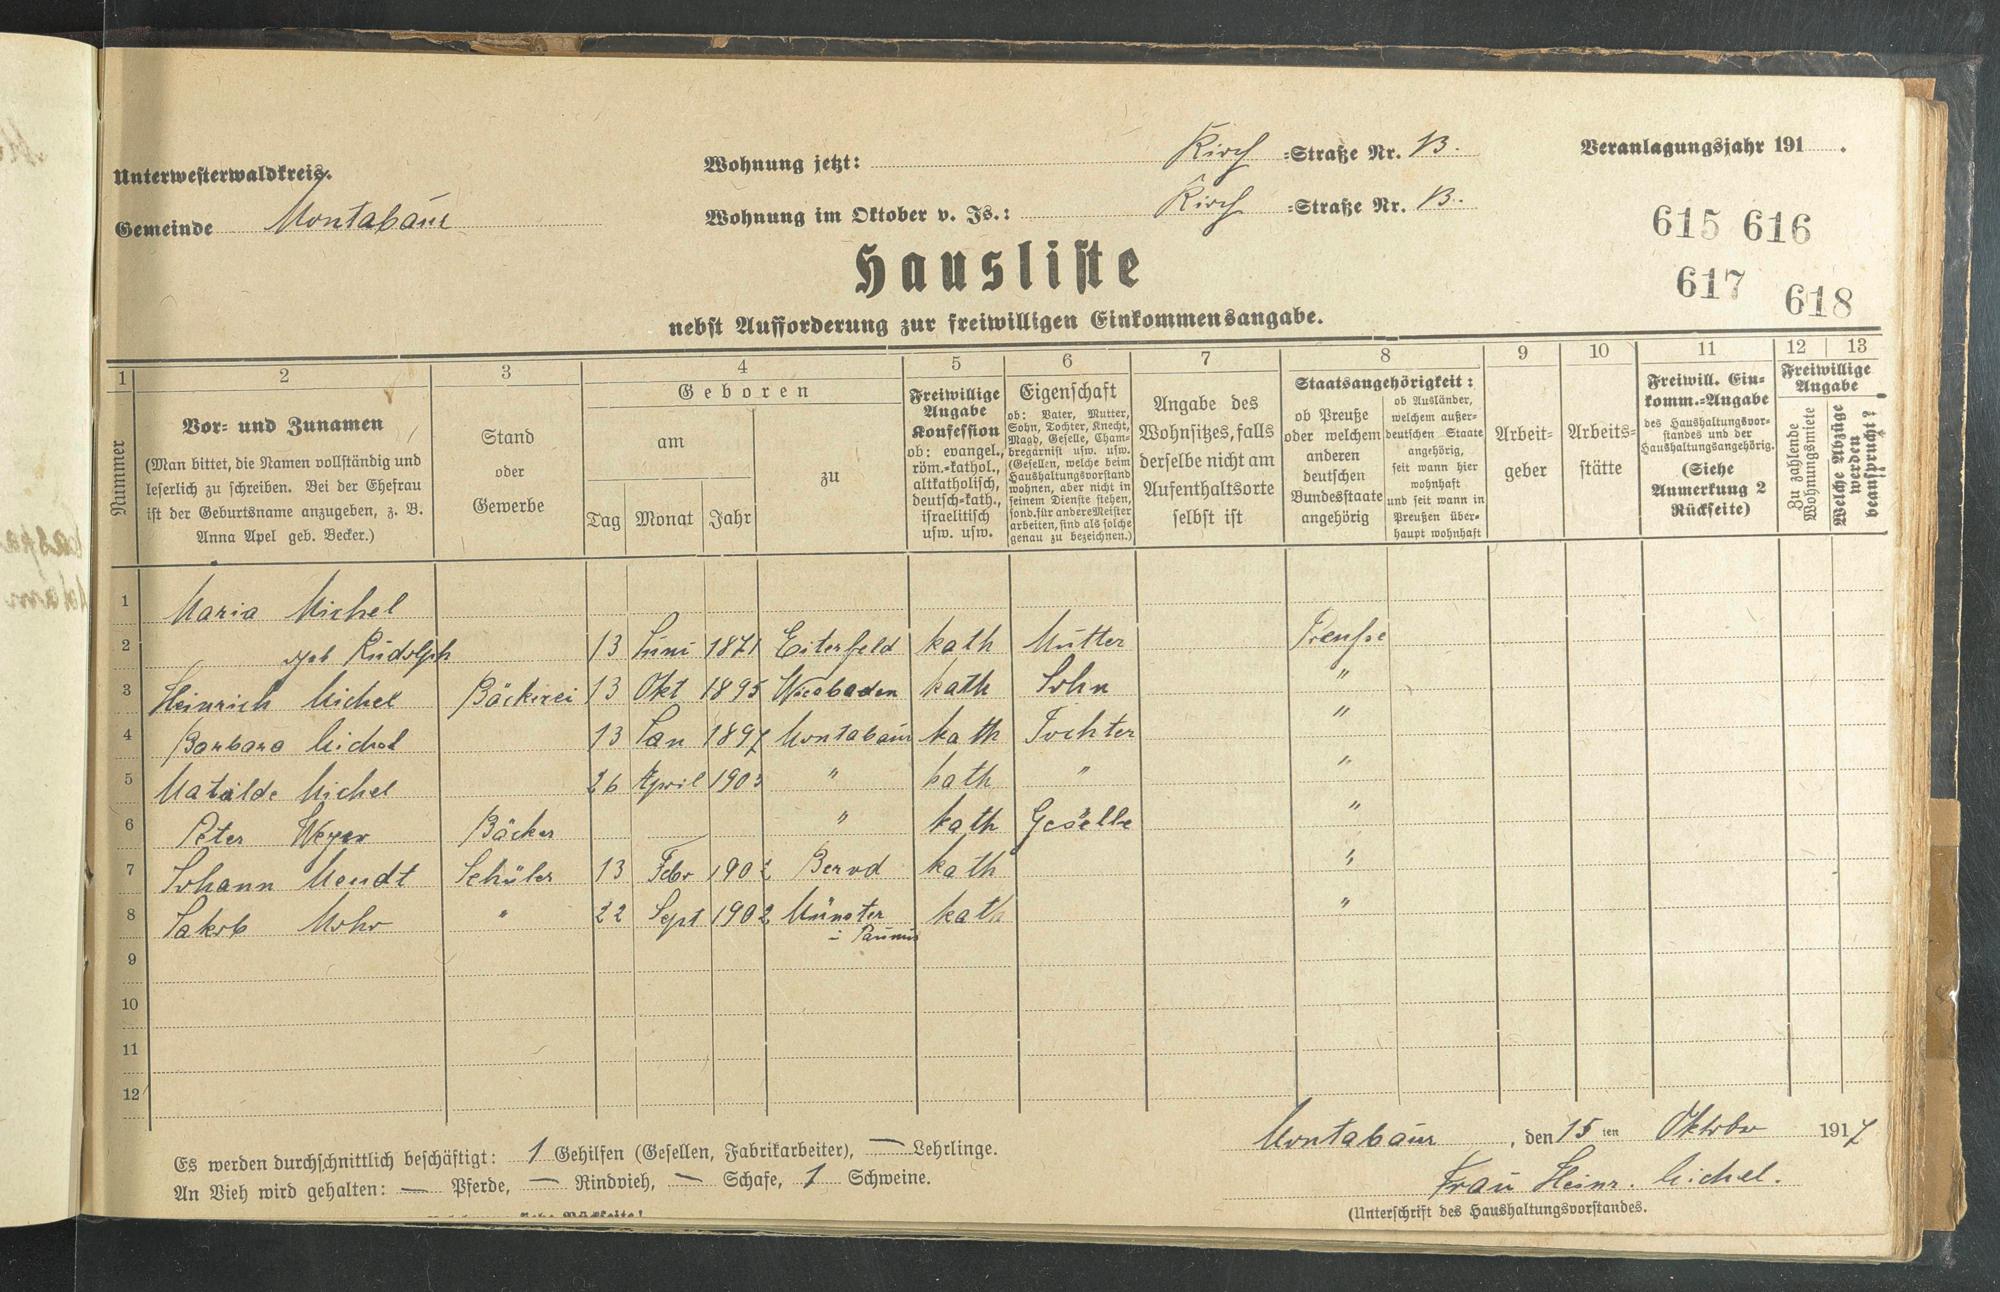 Unterwesterwaldkreis.
Gemeinde Montabaur
Wohnung jetzt: Kirch =Straße Nr. 13.
Wohnung im Oktober v. Js.: Kirch =Straße Nr. 13.
Veranlagungsjahr 191 .
615 616
617 618
Hausliste
nebst Aufforderung zur freiwilligen Einkommensangabe.
1 2 3 4 5 6 7 8 9 10 11 12 13
Nummer
Vor- und Zunamen
(Man bittet, die Namen vollständig und
leserlich zu schreiben. Bei der Ehefrau
ist der Geburtsname anzugeben, z. B.
Anna Apel geb. Becker.)
Stand
oder
Gewerbe
Geboren
am
Tag Monat Jahr
zu
Freiwillige
Angabe
Konfession
ob: evangel.,
röm.-kathol.,
altkatholisch,
deutsch-kath.,
israelitisch
usw. usw.
Eigenschaft
ob: Vater, Mutter,
Sohn, Tochter, Knecht,
Magd, Geselle, Cham-
bregarnist usw. usw.
(Gesellen, welche beim
Haushaltungsvorstand
wohnen, aber nicht in
seinem Dienste stehen,
sond. für andere Meister
arbeiten, sind als solche
genau zu bezeichnen.)
Angabe des
Wohnsitzes, falls
derselbe nicht am
Aufenthaltsorte
selbst ist
Staatsangehörigkeit:
ob Preuße
oder welchem
anderen
deutschen
Bundesstaate
angehörig
ob Ausländer,
welchem außer-
deutschen Staate
angehörig,
seit wann hier
wohnhaft
und seit wann in
Preußen über-
haupt wohnhaft
Arbeit-
geber
Arbeits-
stätte
Freiwill. Ein-
komm.-Angabe
des Haushaltungsvor-
standes und der
Haushaltungsangehörig.
(Siehe
Anmerkung 2
Rückseite)
Freiwillige
Angabe
Zu zahlende
Wohnungsmiete
Welche Abzüge
werden
beansprucht?
1 Maria Michel
2 geb Rudolph 13 Juni 1871 Eiterfeld kath Mutter Preuße
3 Heinrich Michel Bäckerei 13 Okt 1895 Wiesbaden kath Sohn "
4 Barbara Michel 13 Jan 1897 Montabaur kath Tochter "
5 Matilde Michel 26 April 1903 " kath " "
6 Peter Weyer Bäcker " kath Geselle "
7 Johann Mendt Schüler 13 Febr 1902 kath "
8 Jakob Mohr " 22 Sept 1902 Münster kath "
i Taunus
9
10
11
12
Es werden durchschnittlich beschäftigt: 1 Gehilfen (Gesellen, Fabrikarbeiter), — Lehrlinge.
An Vieh wird gehalten: — Pferde, — Rindvieh, — Schafe, 1 Schweine.
Montabaur, den 15 ten Oktober 1917
Frau Heinr. Michel.
(Unterschrift des Haushaltungsvorstandes.